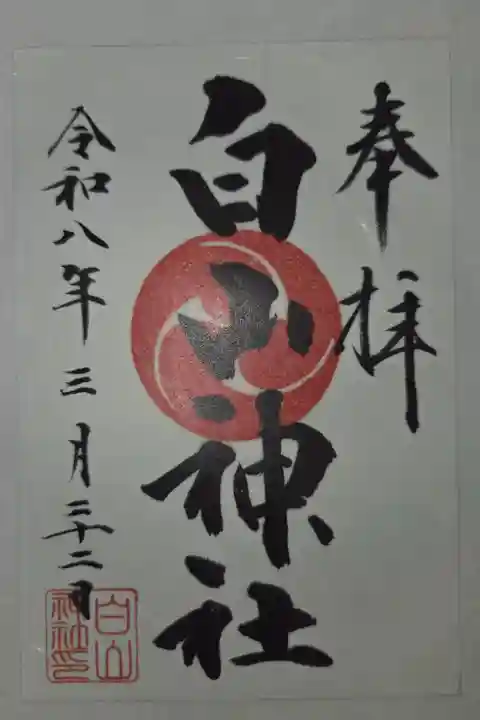 奉拝
白山神社
令和八年三月二十二日
白山
神社印